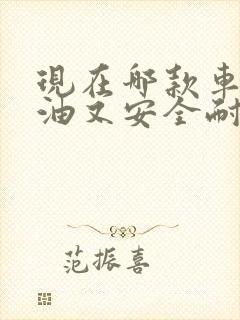 現在哪款車
油又安全耐
范振喜